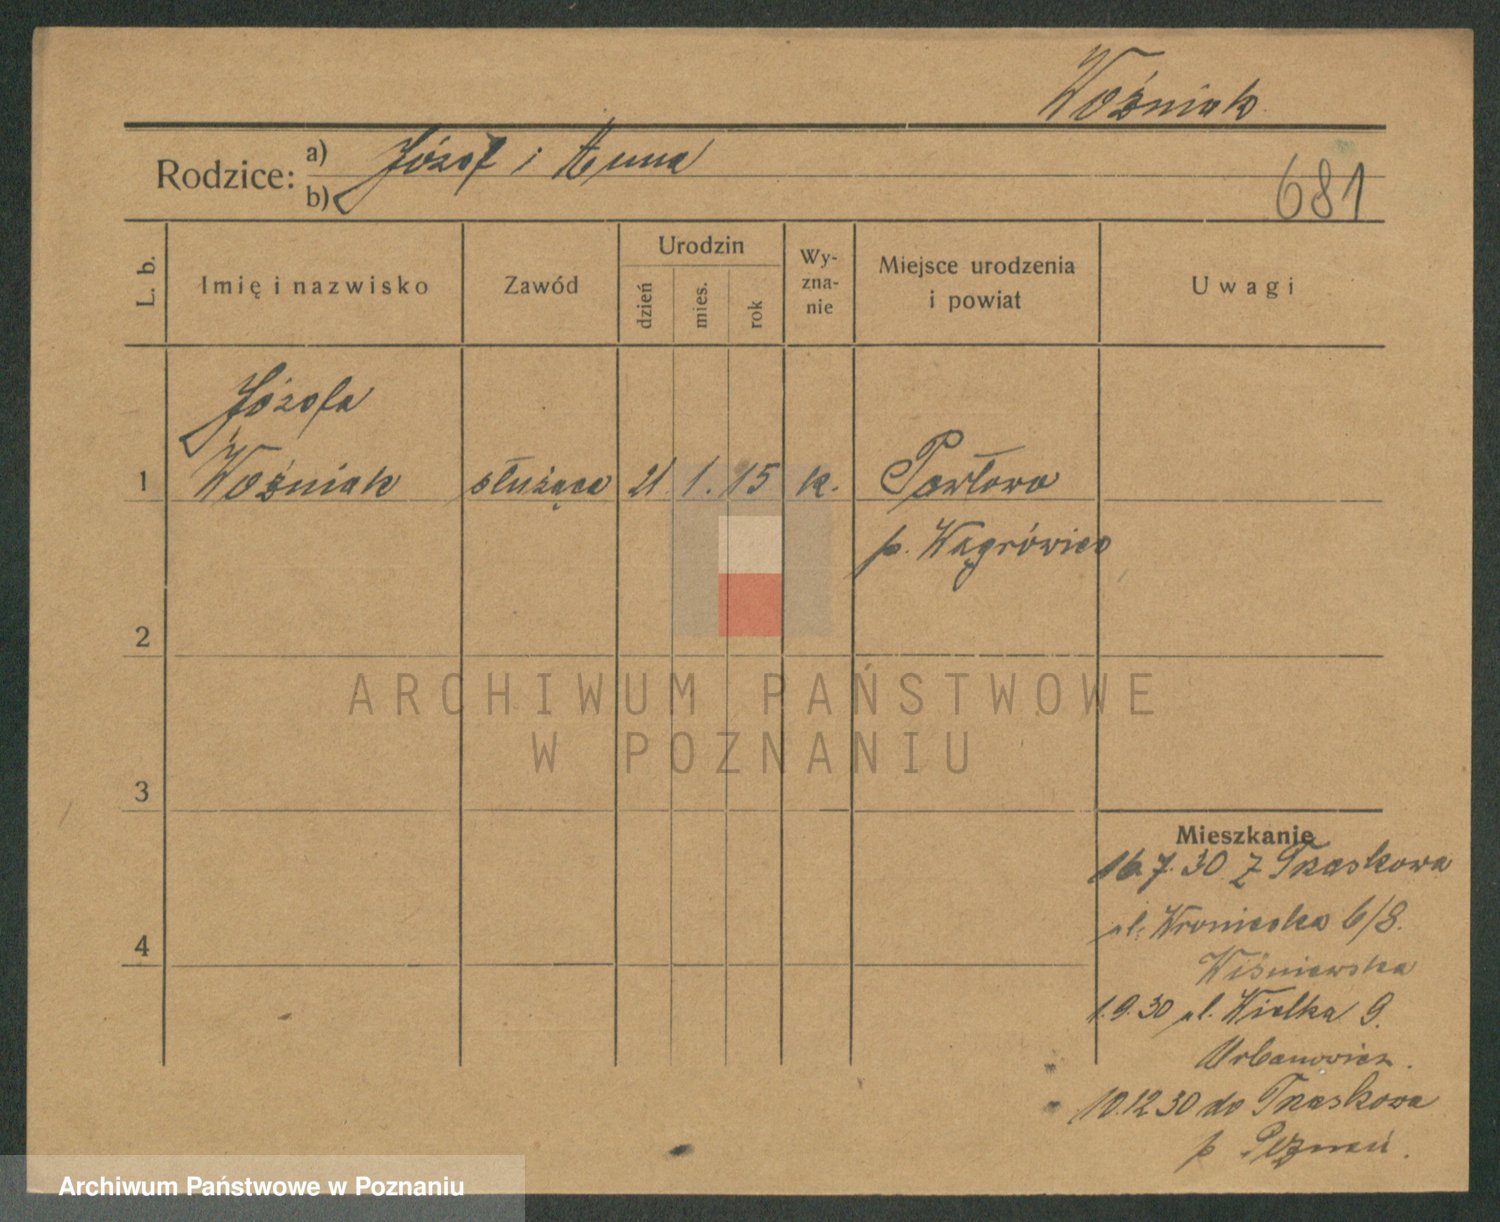 Woźniak
Rodzice: a) Józef i Anna
b)
681
L. b.
Imię i nazwisko
Zawód
Urodzin
dzień
mies.
rok
Wy-
zna-
nie
Miejsce urodzenia
i powiat
Uwagi
Józefa
1 Woźniak służąca 21. 1. 15 k. Pawłowo
p. Wągrówiec
2
3
4
Mieszkanie
16.7.30 z Trzaskowa
ul. Wroniecka 6/8.
Wiśniewska
1.9.30 ul. Wielka 9.
Urbanowicz.
10.12.30 do Trzaskowa
p Poznań.
ARCHIWUM PAŃSTWOWE
W POZNANIU
Archiwum Państwowe w Poznaniu